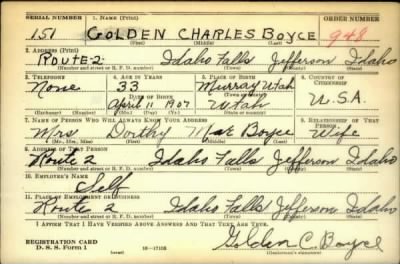 SERIAL NUMBER 1. NAME (Print) ORDER NUMBER
151 GOLDEN CHARLES BOYCE 948
(First) (Middle) (Last)
2. ADDRESS (Print)
ROUTE-2 Idaho Falls Jefferson Idaho
(Number and street or R. F. D. number) (Town) (County) (State)
3. TELEPHONE 4. AGE IN YEARS 5. PLACE OF BIRTH 6. COUNTRY OF CITIZENSHIP
None 33 Murray Utah
DATE OF BIRTH
April 11 1907 Utah U.S.A.
(Exchange) (Number) (Mo.) (Day) (Yr.) (State or country)
7. NAME OF PERSON WHO WILL ALWAYS KNOW YOUR ADDRESS 8. RELATIONSHIP OF THAT PERSON
Mrs Dorthy Mae Boyce Wife
(Mr., Mrs., Miss) (First) (Middle) (Last)
9. ADDRESS OF THAT PERSON
Route 2 Idaho Falls Jefferson Idaho
(Number and street or R. F. D. number) (Town) (County) (State)
10. EMPLOYER'S NAME
Self
11. PLACE OF EMPLOYMENT OR BUSINESS
Route 2 Idaho Falls Jefferson Idaho
(Number and street or R. F. D. number) (Town) (County) (State)
I AFFIRM THAT I HAVE VERIFIED ABOVE ANSWERS AND THAT THEY ARE TRUE.
REGISTRATION CARD
D. S. S. Form 1 16-17105 Golden C. Boyce
(Registrant's signature)